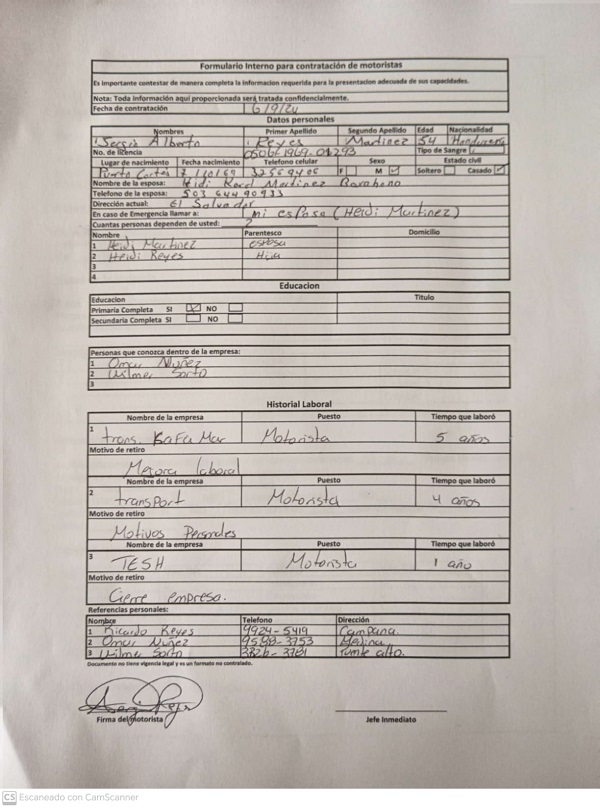 Formulario Interno para contratación de motoristas
Es importante contestar de manera completa la informacion requerida para la presentacion adecuada de sus capacidades.
Nota: Toda información aquí proporcionada será tratada confidencialmente.
Fecha de contratación 6/9/24
Datos personales
Nombres Primer Apellido Segundo Apellido Edad Nacionalidad
Sergio Alberto Reyes Martinez 54
No. de licencia 0506-1969-01293 Tipo de Sangre
Lugar de nacimiento Fecha nacimiento Telefono celular Sexo Estado civil
Puerto Cortes 7/10/69 F M Soltero Casado
Nombre de la esposa: Heidi Martinez Barahona
Telefono de la esposa: 503 6449 0933
Dirección actual: El Salvador
En caso de Emergencia llamar a: mi esposa (Heidi Martinez)
Cuantas personas dependen de usted: 2
Nombre Parentesco Domicilio
1 Heidi Martinez esposa
2 Heidi Reyes Hija
3
4
Educacion
Educacion Titulo
Primaria Completa SI NO
Secundaria Completa SI NO
Personas que conozca dentro de la empresa:
1 Omar Nuñez
2 Wilmer Sorto
3
Historial Laboral
Nombre de la empresa Puesto Tiempo que laboró
1 trans. Rafa Mar Motorista 5 años
Motivo de retiro
Mejora laboral
Nombre de la empresa Puesto Tiempo que laboró
2 transport Motorista 4 años
Motivo de retiro
Motivos Personales
Nombre de la empresa Puesto Tiempo que laboró
3 TESH Motorista 1 año
Motivo de retiro
Cierre empresa.
Referencias personales:
Nombre Telefono Dirección
1 Ricardo Reyes 9924-5419 Campana.
2 Omar Nuñez 9598-3753 Medina
3 Wilmer Sorto 3326-3781 Puente alto.
Documento no tiene vigencia legal y es un formato no controlado.
Firma del motorista Jefe Inmediato
CS Escaneado con CamScanner